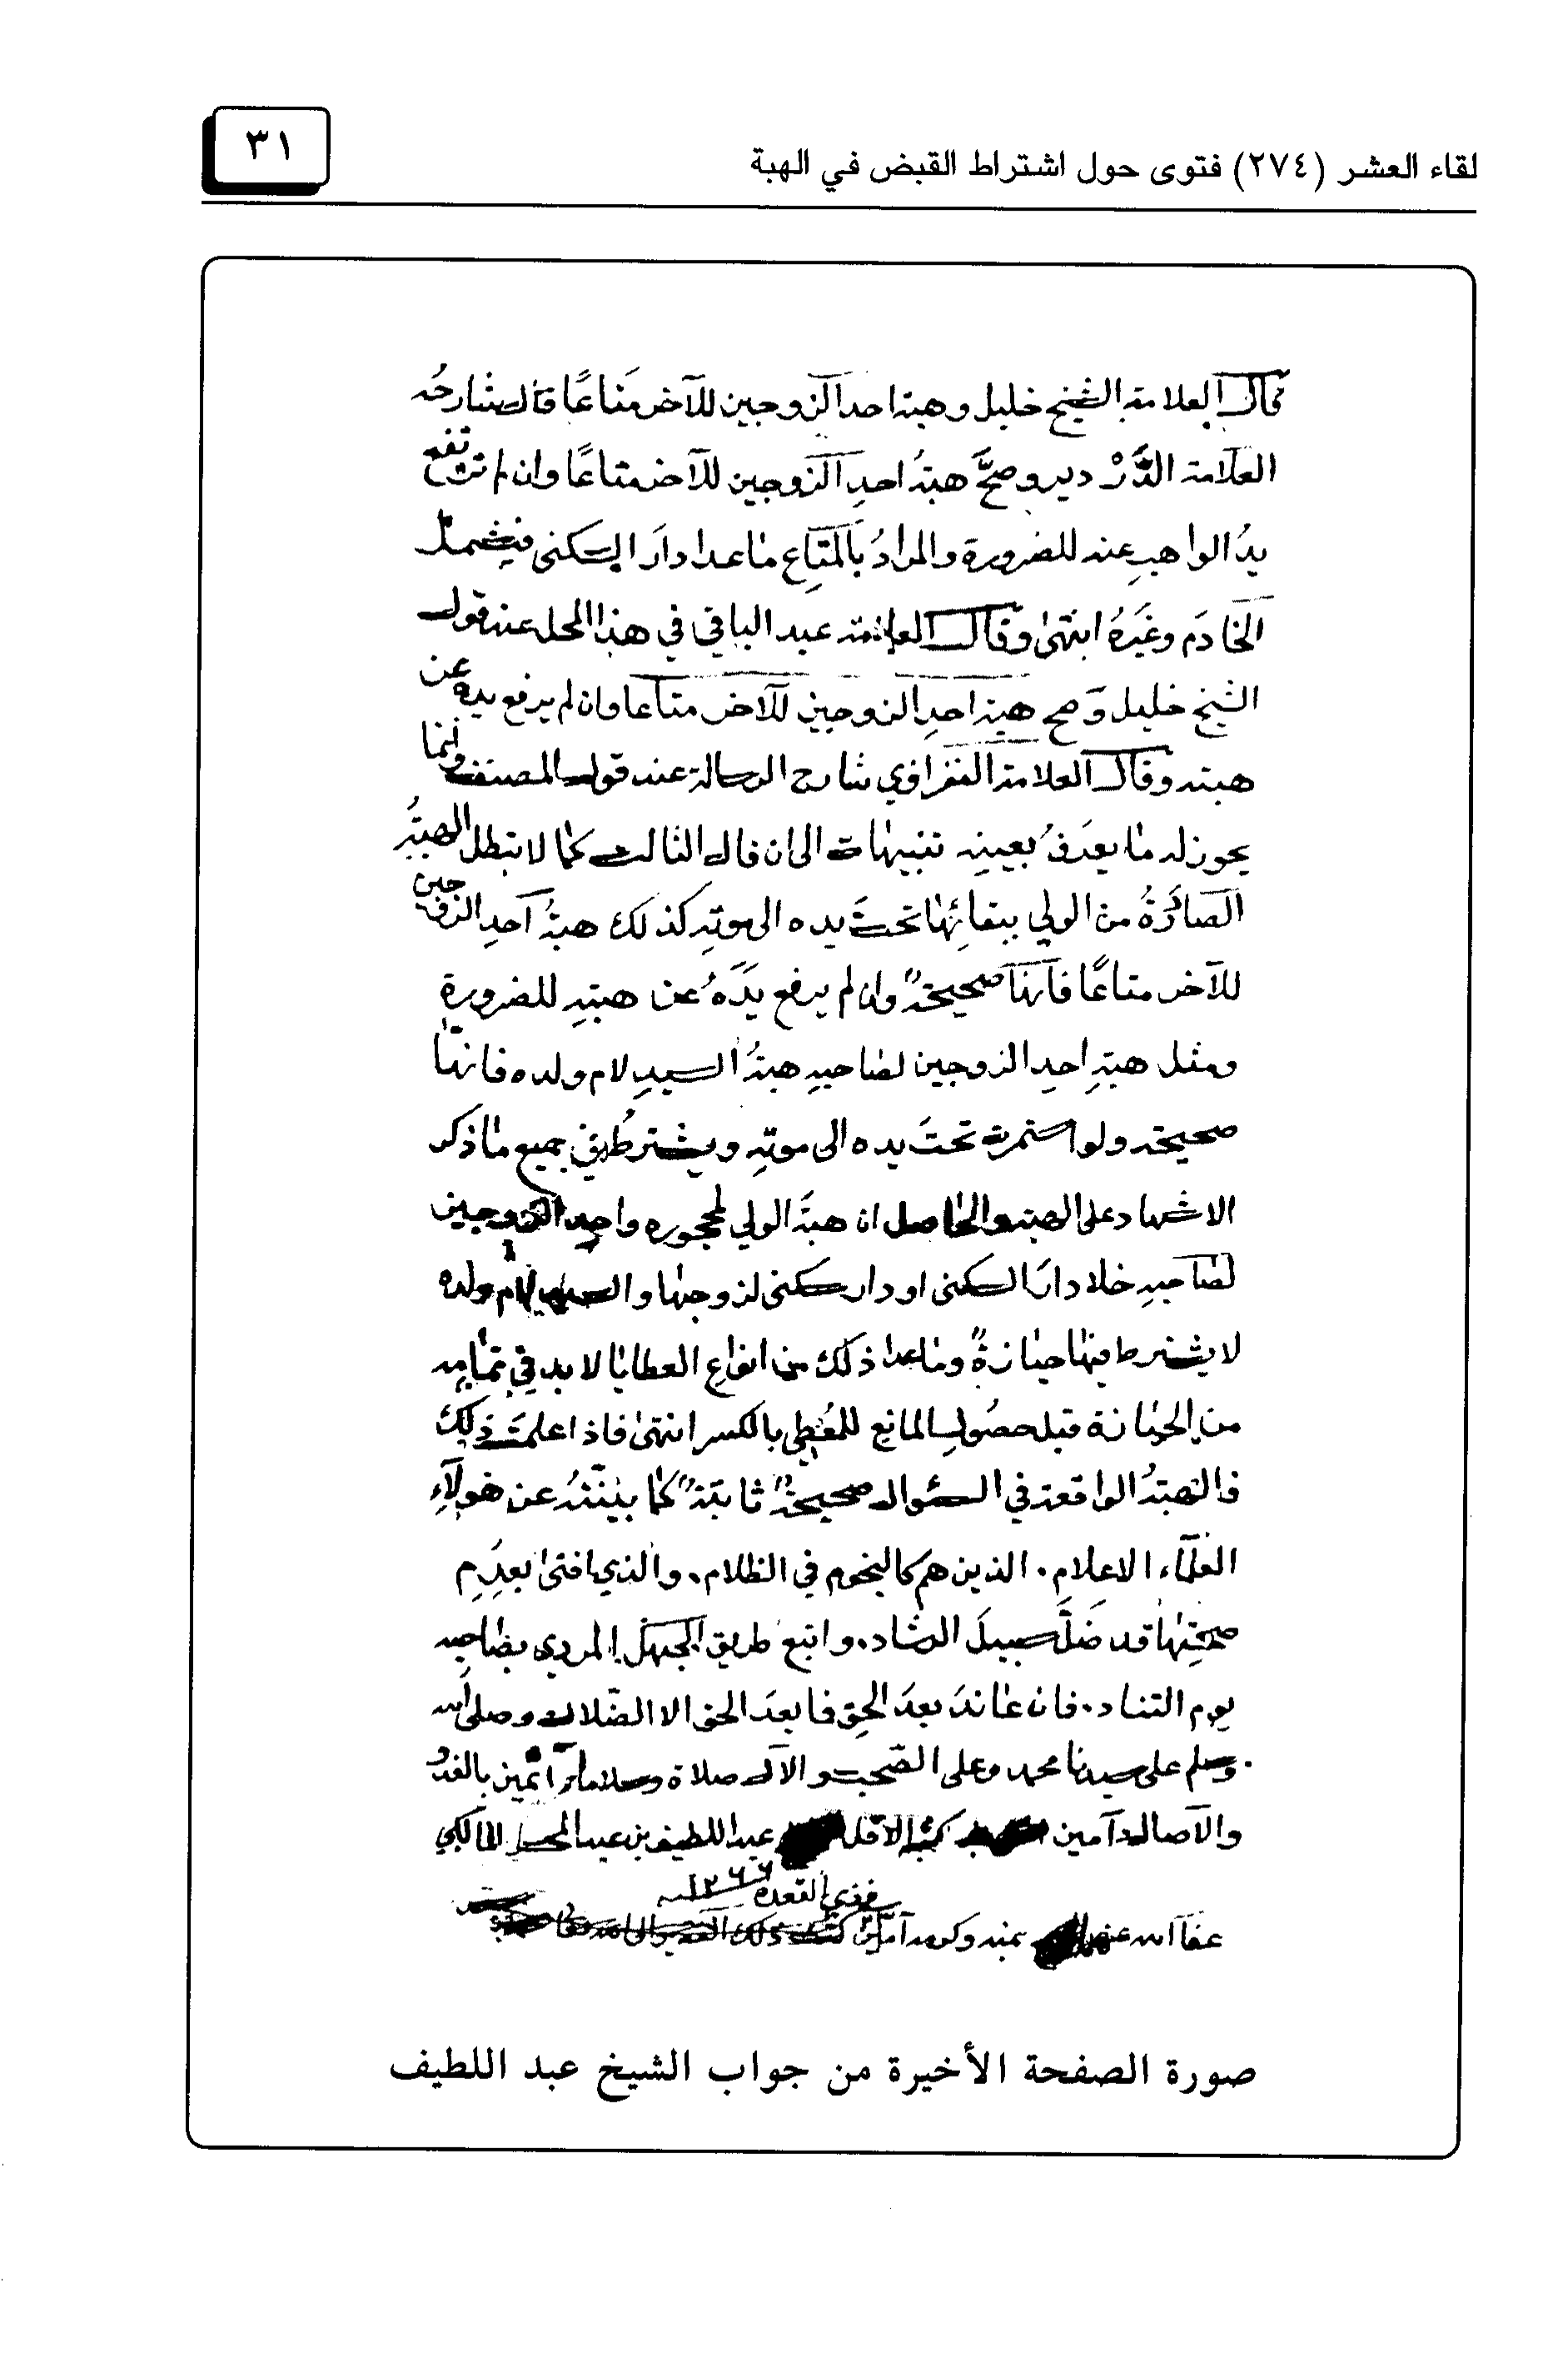 لقاء العشر (٢٧٤) فتوى حول اشتراط القبض في الهبة
٣١
قال العلامة الشيخ خليل وهبة احد الزوجين للآخر متاعًا قال شارحُه
العلامة الدَّرْدير وصحَّ هبةُ احدِ الزوجين للآخر متاعًا وان لم ترتفع
يدُ الواهبِ عنه للضرورة والمرادُ بالمَتاعِ ما عدا دارَ السكنى فيشمل
الخادَم وغيَرهُ انتهىٰ وقال العلامة عبد الباقي في هذا المحل عند قول
الشيخ خليل وَصح هبة احدِ الزوجين للآخر متاعا وان لم يرفع يده عن
هبته وقال العلامة النفراوي شارح الرسالة عند قول المصنف وانما
يجوز له ما يعرفُ بعينِه تنبيهات الى ان قال الثالث كما لا تبطل الهبةُ
الصادَرةُ من الولي ببقائِها تحتَ يده الى موتِه كذلك هبةُ احدِ الزوجين
للآخر متاعًا فانها صحيحةٌ وان لم يرفع يَدَهُ عن هبتِه للضرورةِ
ومثل هبةِ احدِ الزوجين لصاحبِه هبةُ السيدِ لام ولده فانها
صحيحة ولو استمرت تحتَ يده الى موتِه ويشترطُ في جميع ما ذكر
الاشهاد على الهبة والحاصل ان هبةَ الولي لمحجوره واحدِ الزوجين
لصاحبِه خلا دارَ السكنى او دار سكنى لزوجها والسيد لام ولده
لا يشترط فيها حيازةٌ وما عدا ذلك من انواعِ العطايا لا بد في تمامِه
من الحيازة قبل حصُولِ المانعِ للمُعْطِي بالكسر انتهىٰ فاذا علمتَ ذلك
فالهبةُ الواقعة في السئوال صحيحةٌ ثابتةٌ كما بينّتهُ عن هولآءِ
العلمآء الاعلامِ. الذين هم كالنجوم في الظلام. والذي افتىٰ بعدِمِ
صحتِها قد ضلَّ سبيلَ الرشاد. واتبع طريق الجهل المردي بصاحبِه
يوم التناد. فان عاندَ بعدَ الحقِ فما بعدَ الحق الا الضّلال وصلى اللّه
وسلم على سيدنا محمد وعلى الصّحب والآل صلاة وسلاما دآئمين بالغدو
والآصال آمين كتبه الاقل عبد اللطيف بن عبد المحسن المالكي
في ذي القعدة ١٢٦٦ سنة
عفا اللّه عنه بمنه وكرمه آمين
صورة الصفحة الأخيرة من جواب الشيخ عبد اللطيف